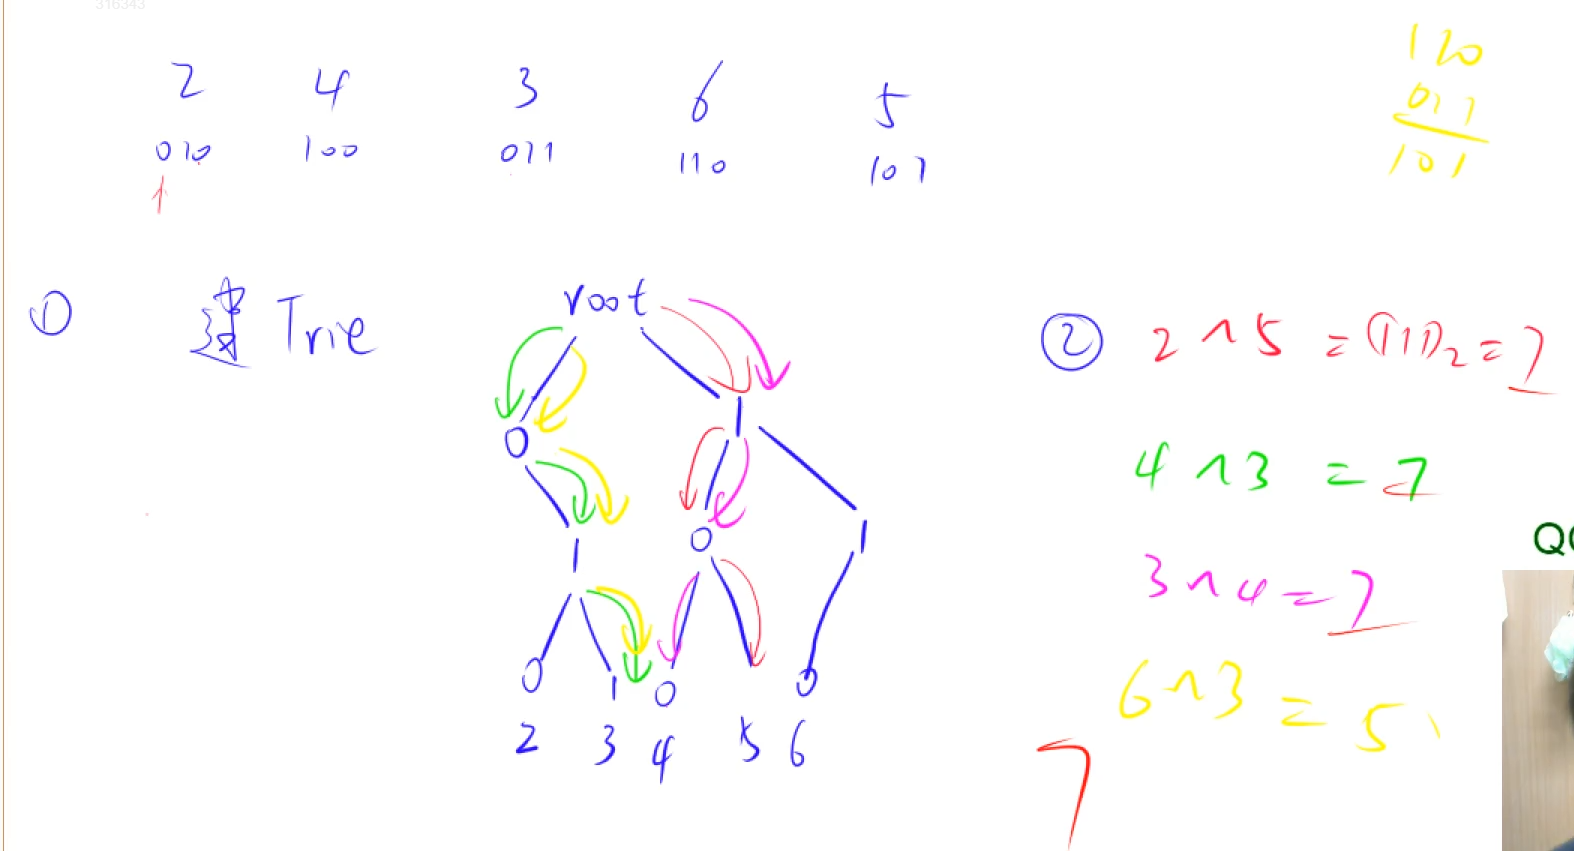 316343
2 4 3 6 5
010 100 011 110 101
1
110
011
101
① 建 Trie
root
0 1
1 0 1
0 1 0 0
2 3 4 5 6
② 2 ^ 5 = (111)₂ = 7
4 ^ 3 = 7
3 ^ 4 = 7
6 ^ 3 = 5
7